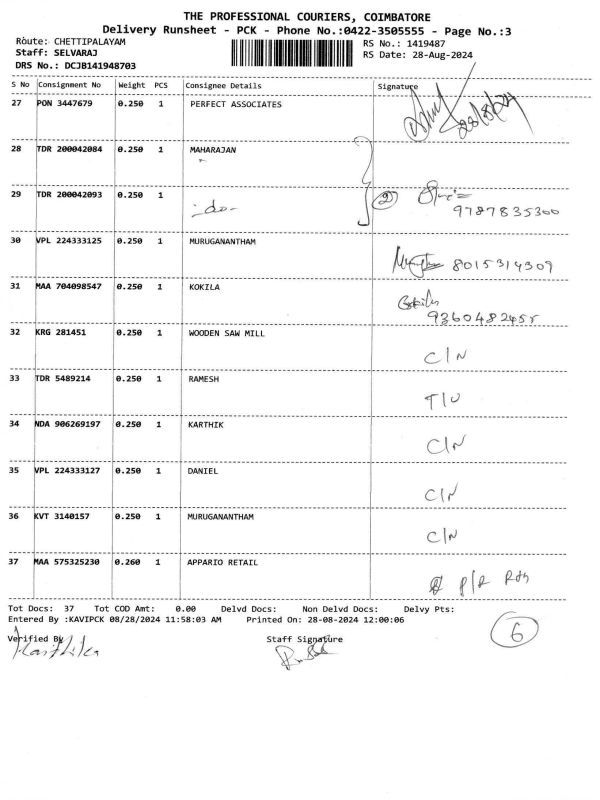 THE PROFESSIONAL COURIERS, COIMBATORE
Delivery Runsheet - PCK - Phone No.:0422-3505555 - Page No.:3
Route: CHETTIPALAYAM
Staff: SELVARAJ
DRS No.: DCJB141948703
RS No.: 1419487
RS Date: 28-Aug-2024
S No Consignment No Weight PCS Consignee Details Signature
27 PON 3447679 0.250 1 PERFECT ASSOCIATES 28/08/24
28 TDR 200042084 0.250 1 MAHARAJAN
29 TDR 200042093 0.250 1 -do- 2
9787835300
30 VPL 224333125 0.250 1 MURUGANANTHAM
8015314309
31 MAA 704098547 0.250 1 KOKILA
Kokila
9360482455
32 KRG 281451 0.250 1 WOODEN SAW MILL
C/N
33 TDR 5489214 0.250 1 RAMESH
T/U
34 NDA 906269197 0.250 1 KARTHIK
C/N
35 VPL 224333127 0.250 1 DANIEL
C/N
36 KVT 3140157 0.250 1 MURUGANANTHAM
C/N
37 MAA 575325230 0.260 1 APPARIO RETAIL
P/R
Tot Docs: 37 Tot COD Amt: 0.00 Delvd Docs: Non Delvd Docs: Delvy Pts:
Entered By :KAVIPCK 08/28/2024 11:58:03 AM Printed On: 28-08-2024 12:00:06
6
Verified By Staff Signature